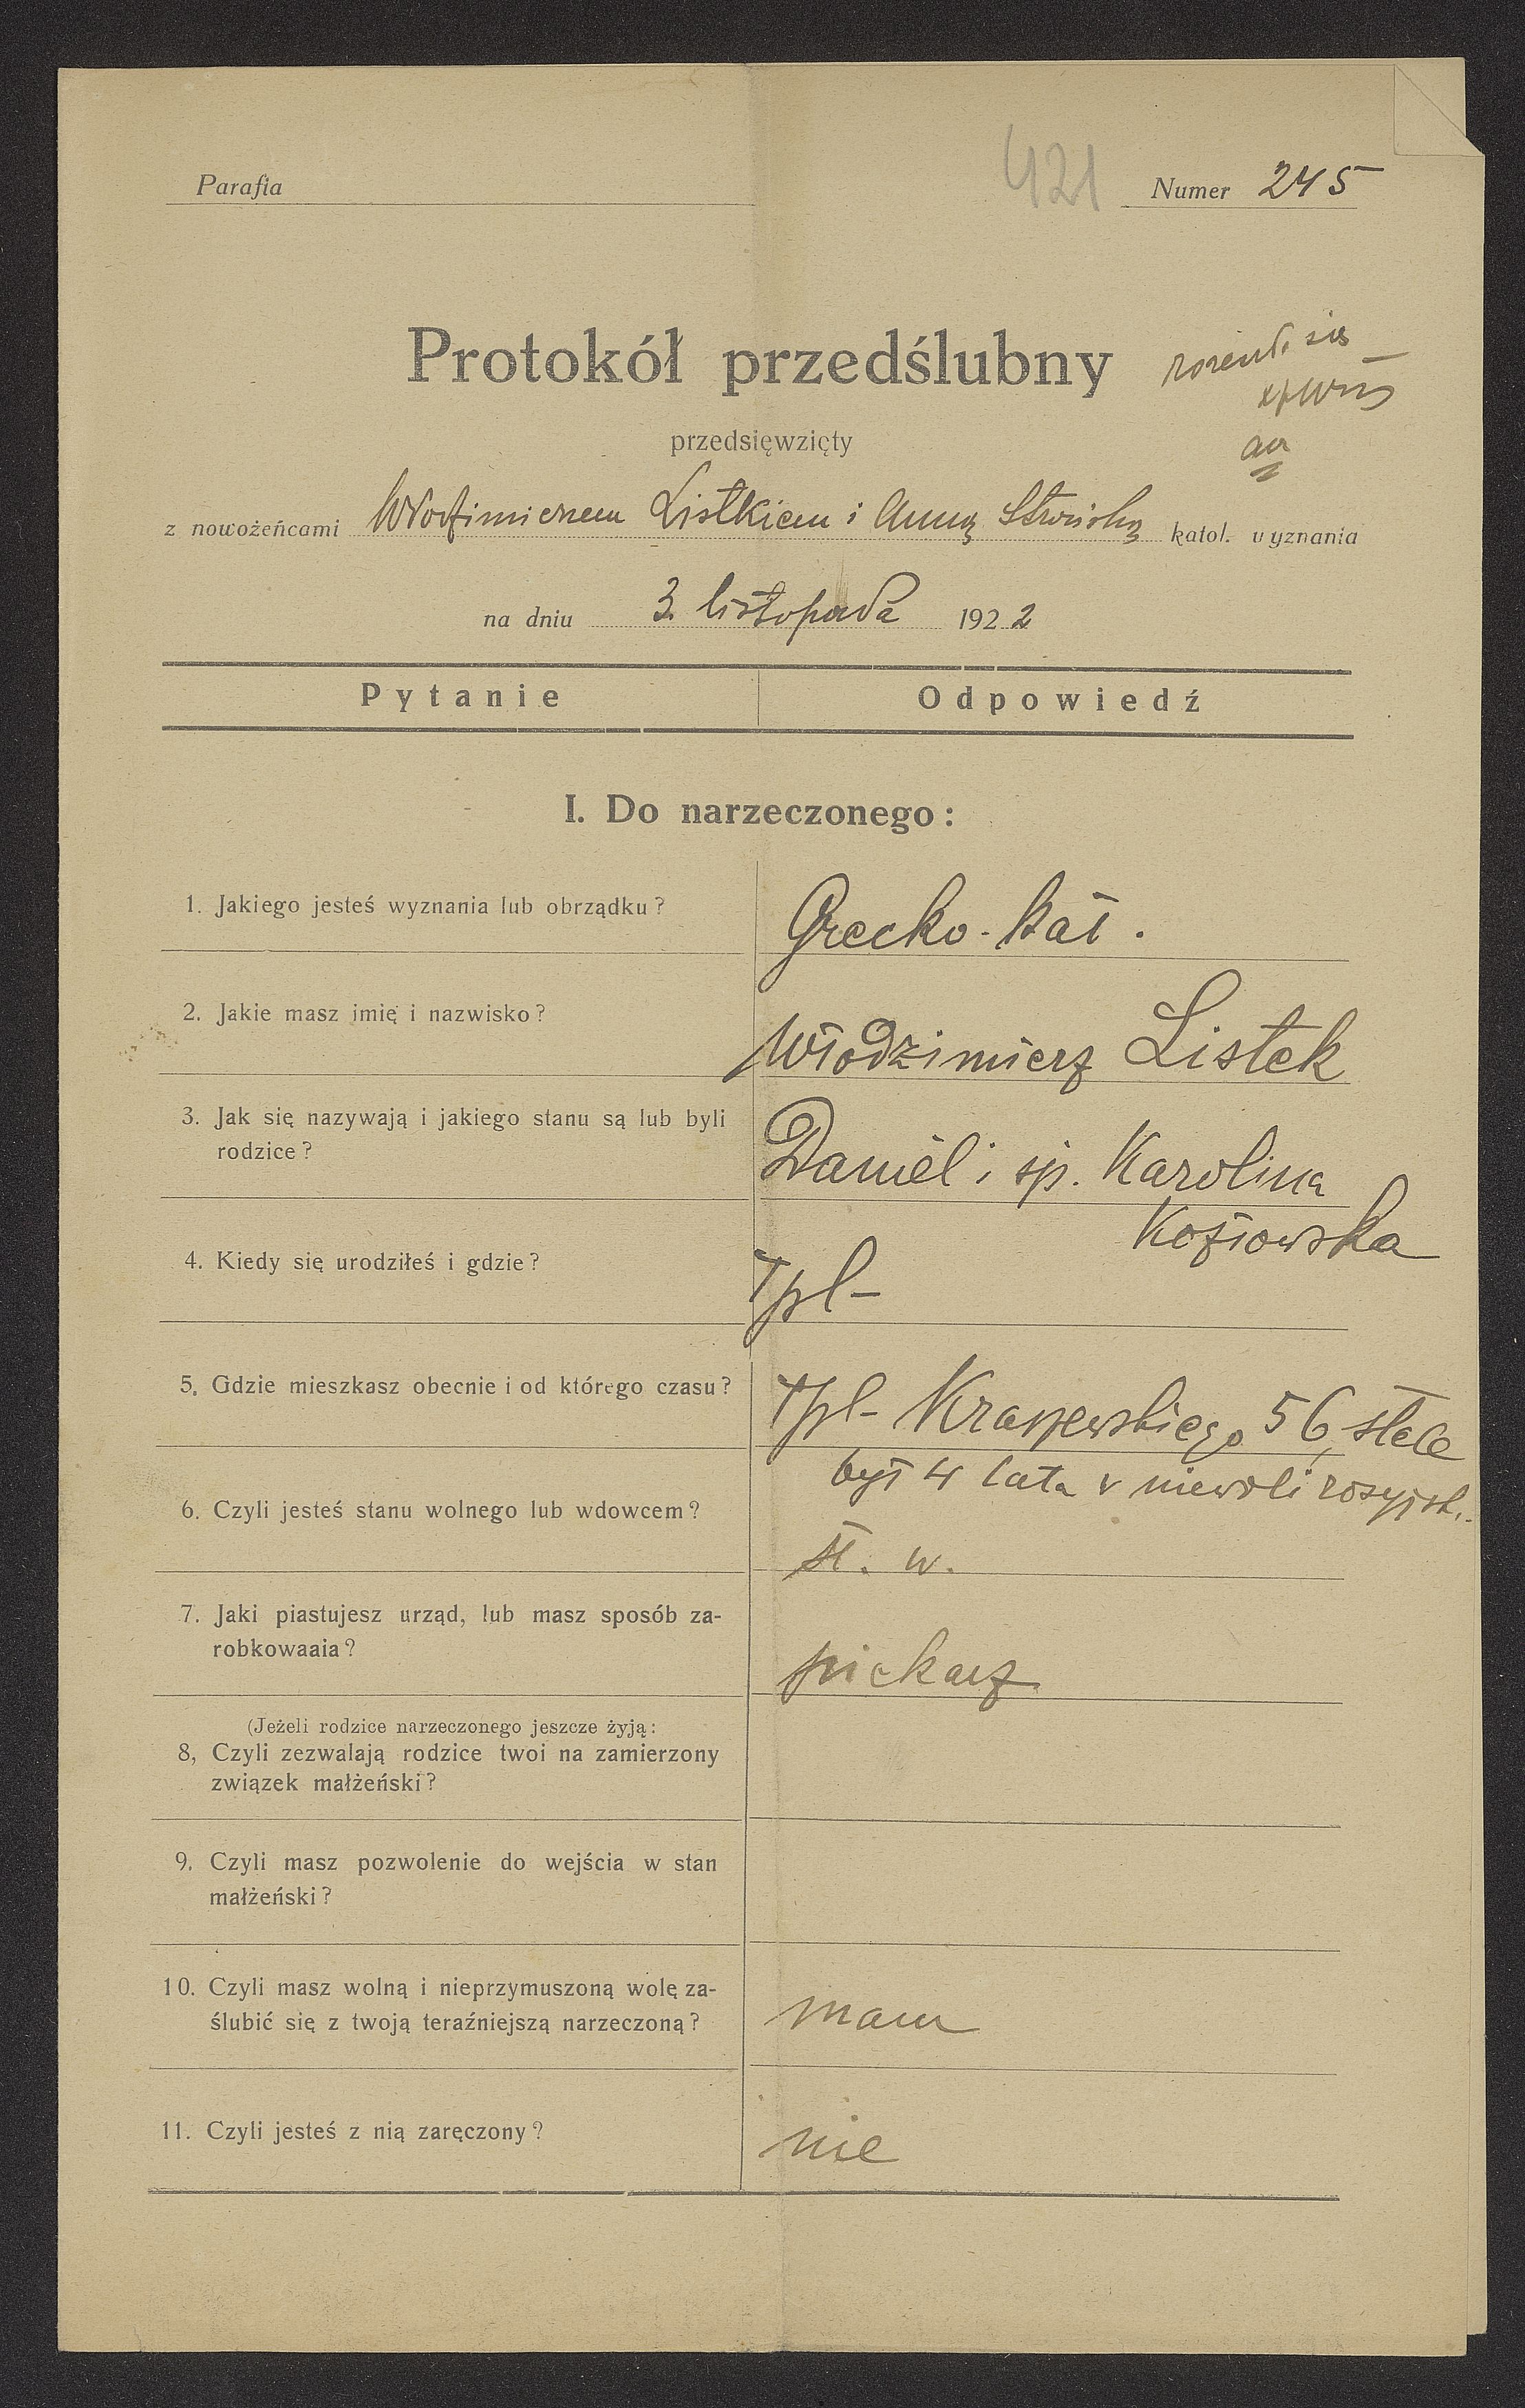 Parafia
421
Numer 245
Protokół przedślubny
przedsięwzięty
z nowożeńcami Włodzimierzem Listkiem i Anną katol. wyznania
na dniu 3. listopada 1922
Pytanie
Odpowiedź
I. Do narzeczonego:
1. Jakiego jesteś wyznania lub obrządku?
Grecko-kat.
2. Jakie masz imię i nazwisko?
Włodzimierz Listek
3. Jak się nazywają i jakiego stanu są lub byli
rodzice?
Daniel i śp. Karolina
Kozłowska
4. Kiedy się urodziłeś i gdzie?
Tpl-
5. Gdzie mieszkasz obecnie i od którego czasu?
Tpl- Kraszewskiego 56, stale
był 4 lata w niewoli rosyjsk.
6. Czyli jesteś stanu wolnego lub wdowcem?
st. w.
7. Jaki piastujesz urząd, lub masz sposób za-
robkowaaia?
piekarz
(Jeżeli rodzice narzeczonego jeszcze żyją:
8, Czyli zezwalają rodzice twoi na zamierzony
związek małżeński?
9. Czyli masz pozwolenie do wejścia w stan
małżeński?
10. Czyli masz wolną i nieprzymuszoną wolę za-
ślubić się z twoją teraźniejszą narzeczoną?
mam
11. Czyli jesteś z nią zaręczony?
nie